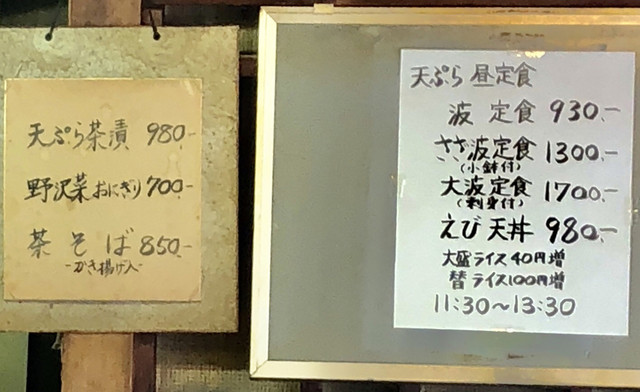 天ぷら茶漬 980.-
野沢菜おにぎり 700.-
茶そば 850.-
-かき揚げ入-
天ぷら 昼定食
波 定食 930.-
ささ波定食 1300.-
(小鉢付)
大波定食 1700.-
(刺身付)
えび 天丼 980.-
大盛ライス40円増
替ライス100円増
11:30〜13:30